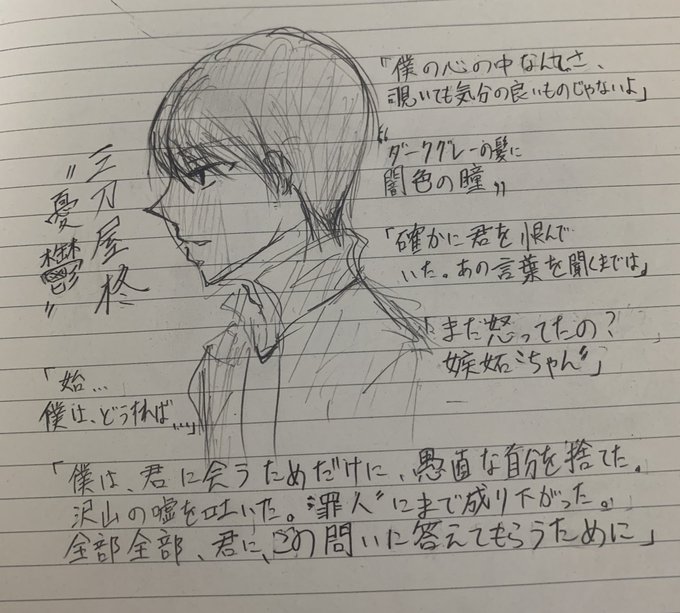 「僕の心の中なんてさ、
覗いても気分の良いものじゃないよ」
"ダークグレーの髪に
闇色の瞳"
「確かに君を恨んで
いた。あの言葉を聞くまでは」
「また怒ってたの?
嫉妬"ちゃん"」
三刀屋柊
"憂鬱"
「始…
僕は、どうすれば…」
「僕は、君に会うためだけに、愚直な自分を捨てた。
沢山の嘘を吐いた。"罪人"にまで成り下がった。
全部全部、君に、この問いに答えてもらうために」